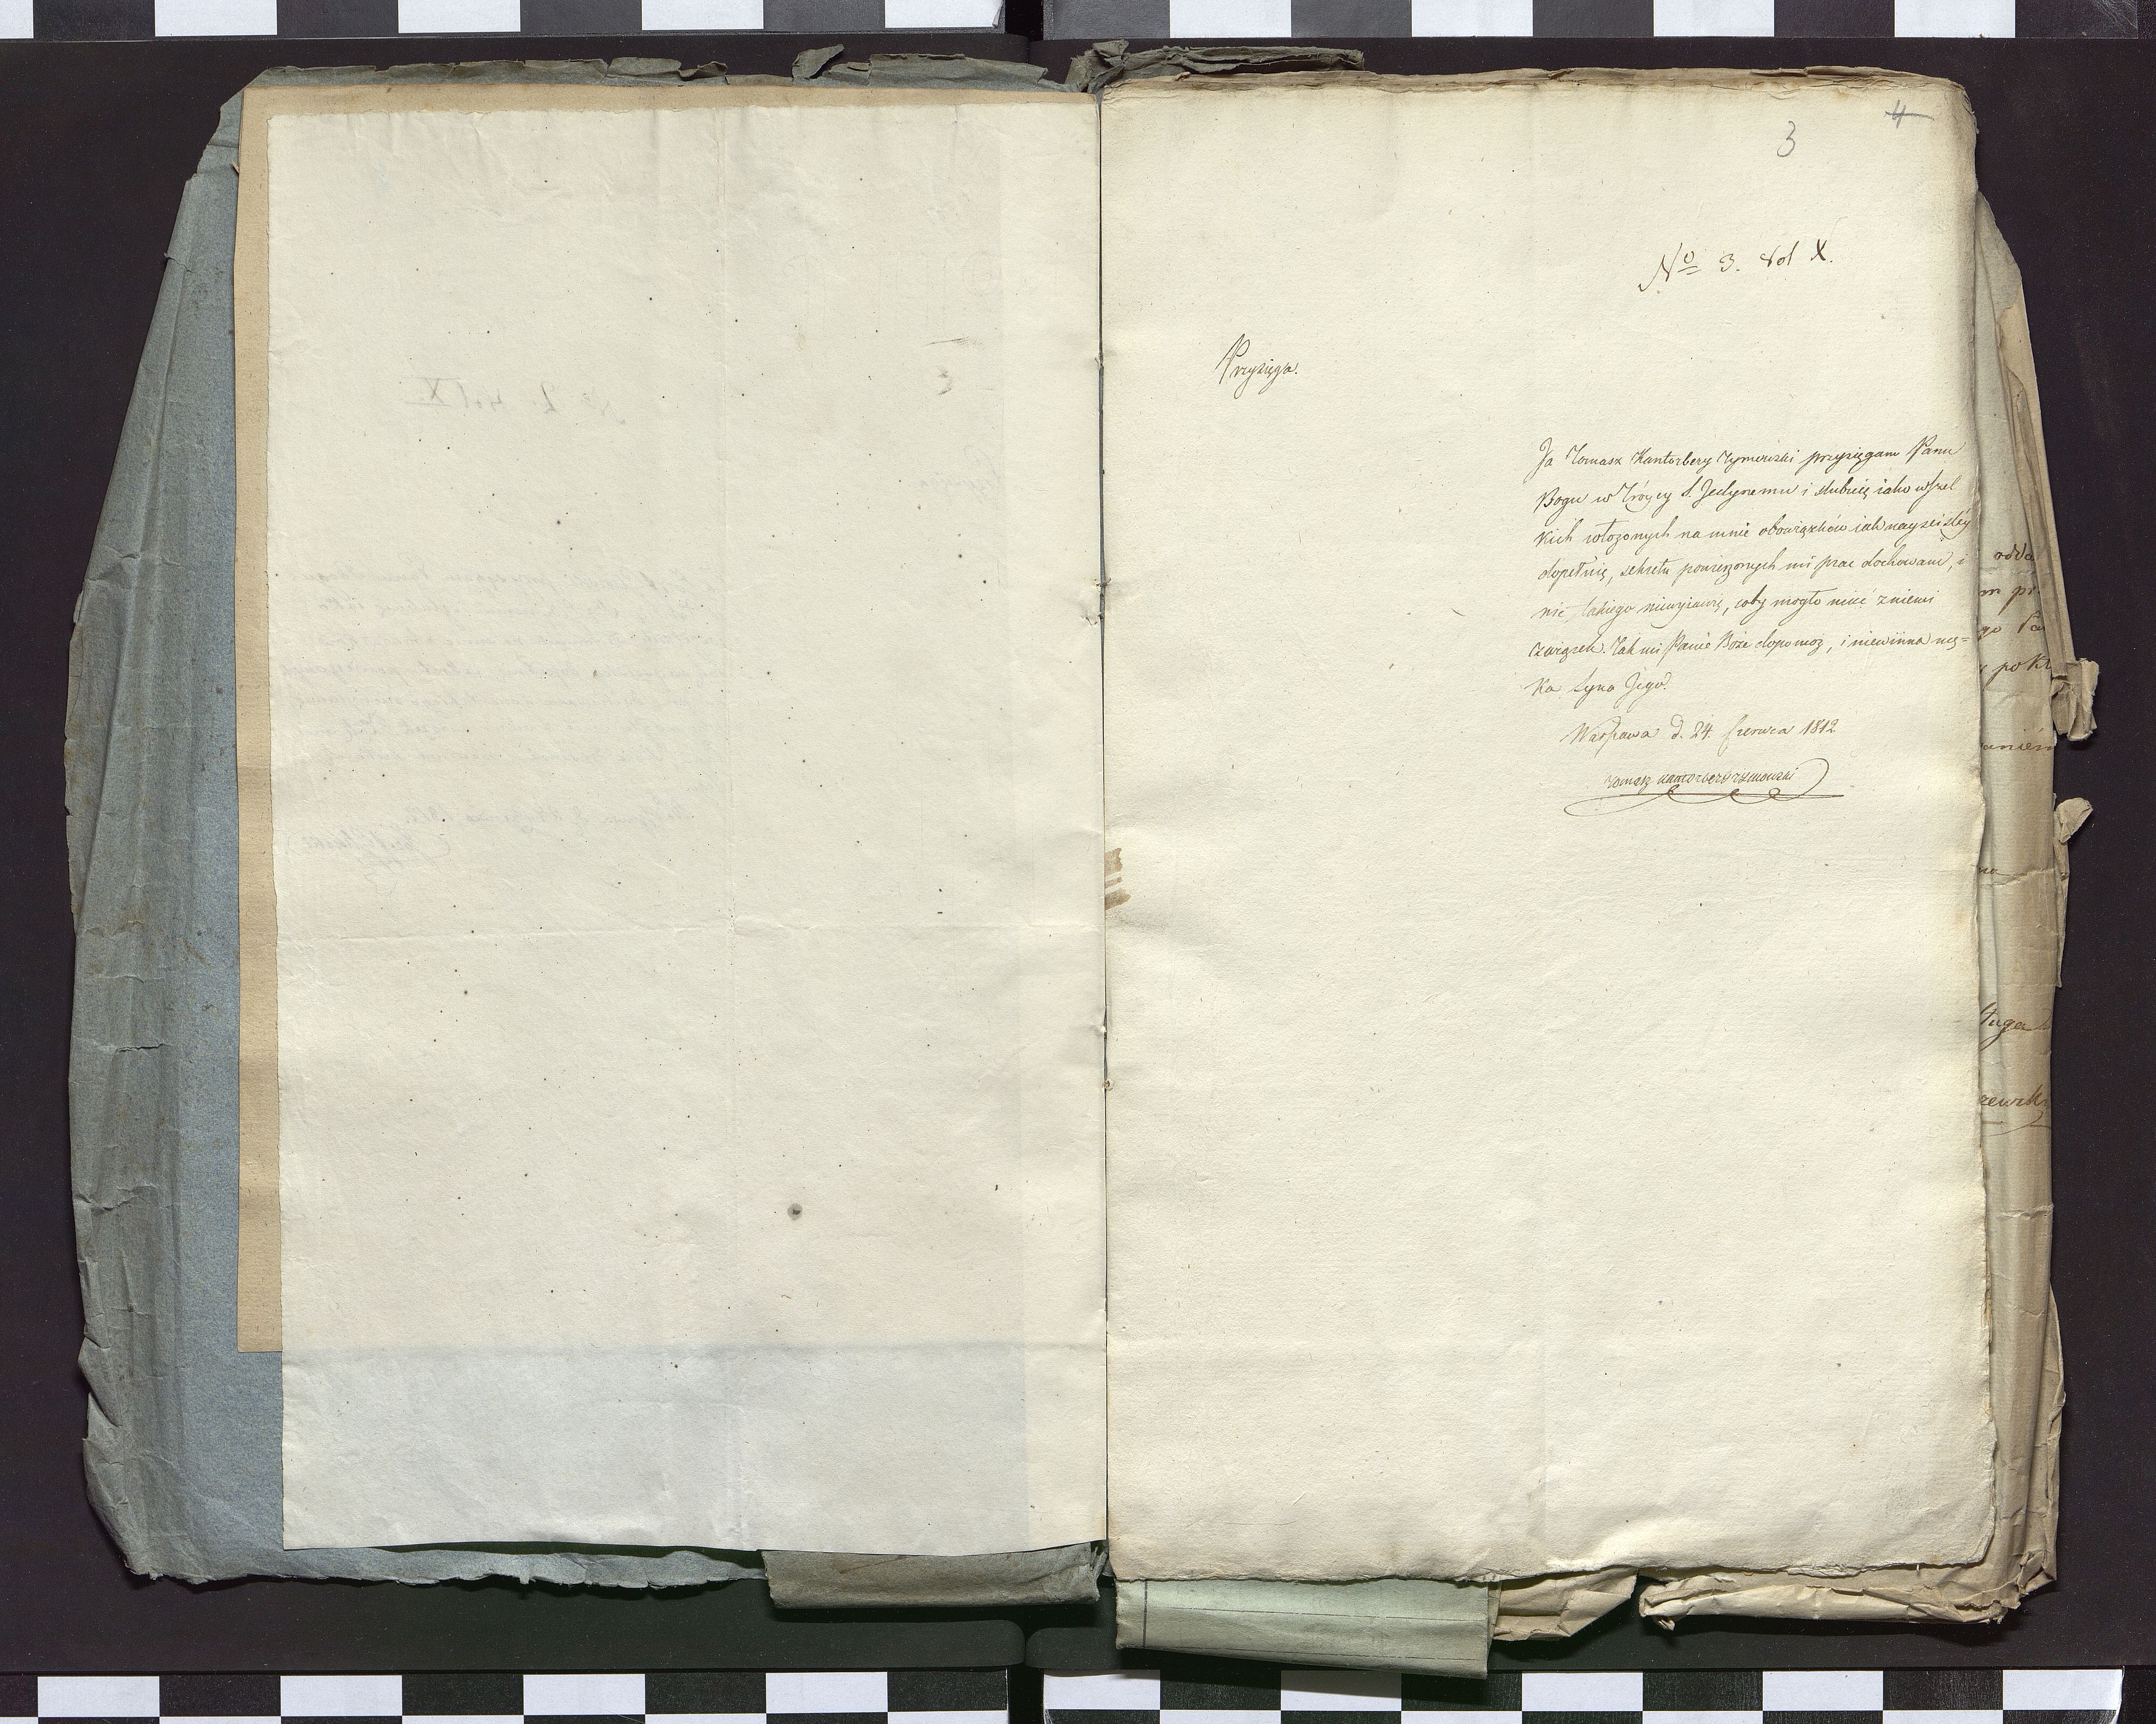 4
3
No 3. vol X.
Przysięga.
Ja Tomasz Kantorbery Tymowski przysięgam Panu
Bogu w Tróycy S. Jedynemu i slubuię iako wszel
kich włożonych na mnie obowiązków iak nayściśléy
dopełnię, sekretu powierzonych mi prac dochowam, i
nic takiego niewyiawię, coby mogło mieć z niemi
związek. Tak mi Panie Boże dopomoż, i niewinna mę=
ka Syna Jego.
Warszawa d. 24 Czerwca 1812
Tomasz Kantorbery Tymowski